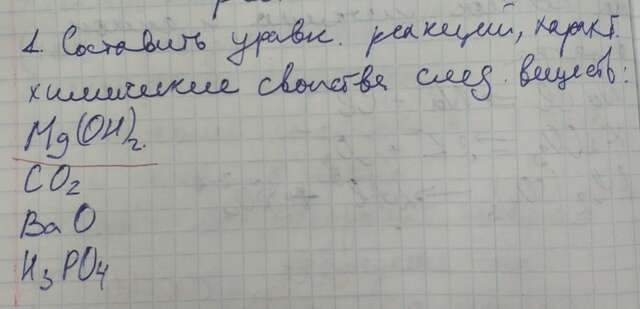 1. Составить уравн. реакций, характ.
химические свойства след. веществ:
Mg(OH)₂.
CO₂
BaO
H₃PO₄